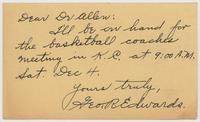 Dear Dr Allen:
I'll be on hand for
the basketball coaches
meeting in K.C. at 9:00 A.M.
Sat. Dec 4.
Yours truly,
Geo. R. Edwards.